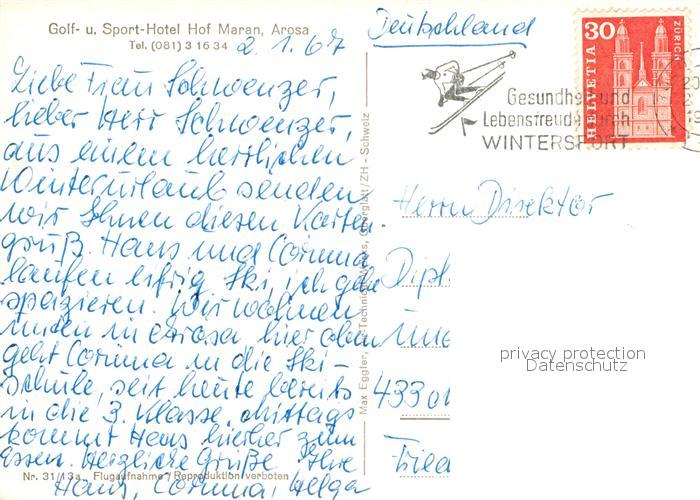 Golf- u. Sport-Hotel Hof Maran, Arosa
Tel. (081) 3 16 34
2.1.67
Liebe Frau Schwenzer,
lieber Herr Schwenzer,
aus einem herrlichen
Winterurlaub senden
wir Ihnen diesen Karten-
gruß. Hans und Corinna
laufen eifrig Ski, ich gehe
spazieren. Wir wohnen
unten in Arosa, hier oben
geht Corinna in die Ski-
schule, seit heute bereits
in die 3. Klasse. Mittags
kommt Hans hierher zum
Essen. Herzliche Grüße Ihre
Nr. 31/13a Flugaufnahme / Reproduktion verboten
Hans, Corinna, Helga
Max Eggler, Schweiz
Deutschland
HELVETIA
30
ZÜRICH
Gesundheit und
Lebensfreude durch
WINTERSPORT
Herrn Direktor
Dipl
433
privacy protection
Datenschutz